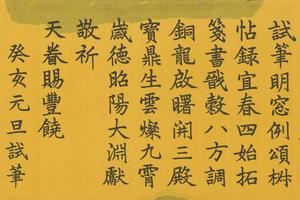 試筆明窓例頌椒
帖録宜春四始拓
箋書戩穀八方調
銅龍啟曙開三殿
寶鼎生雲燦九霄
歲德昭陽大淵獻
敬祈
天眷賜豐饒
癸亥元旦試筆